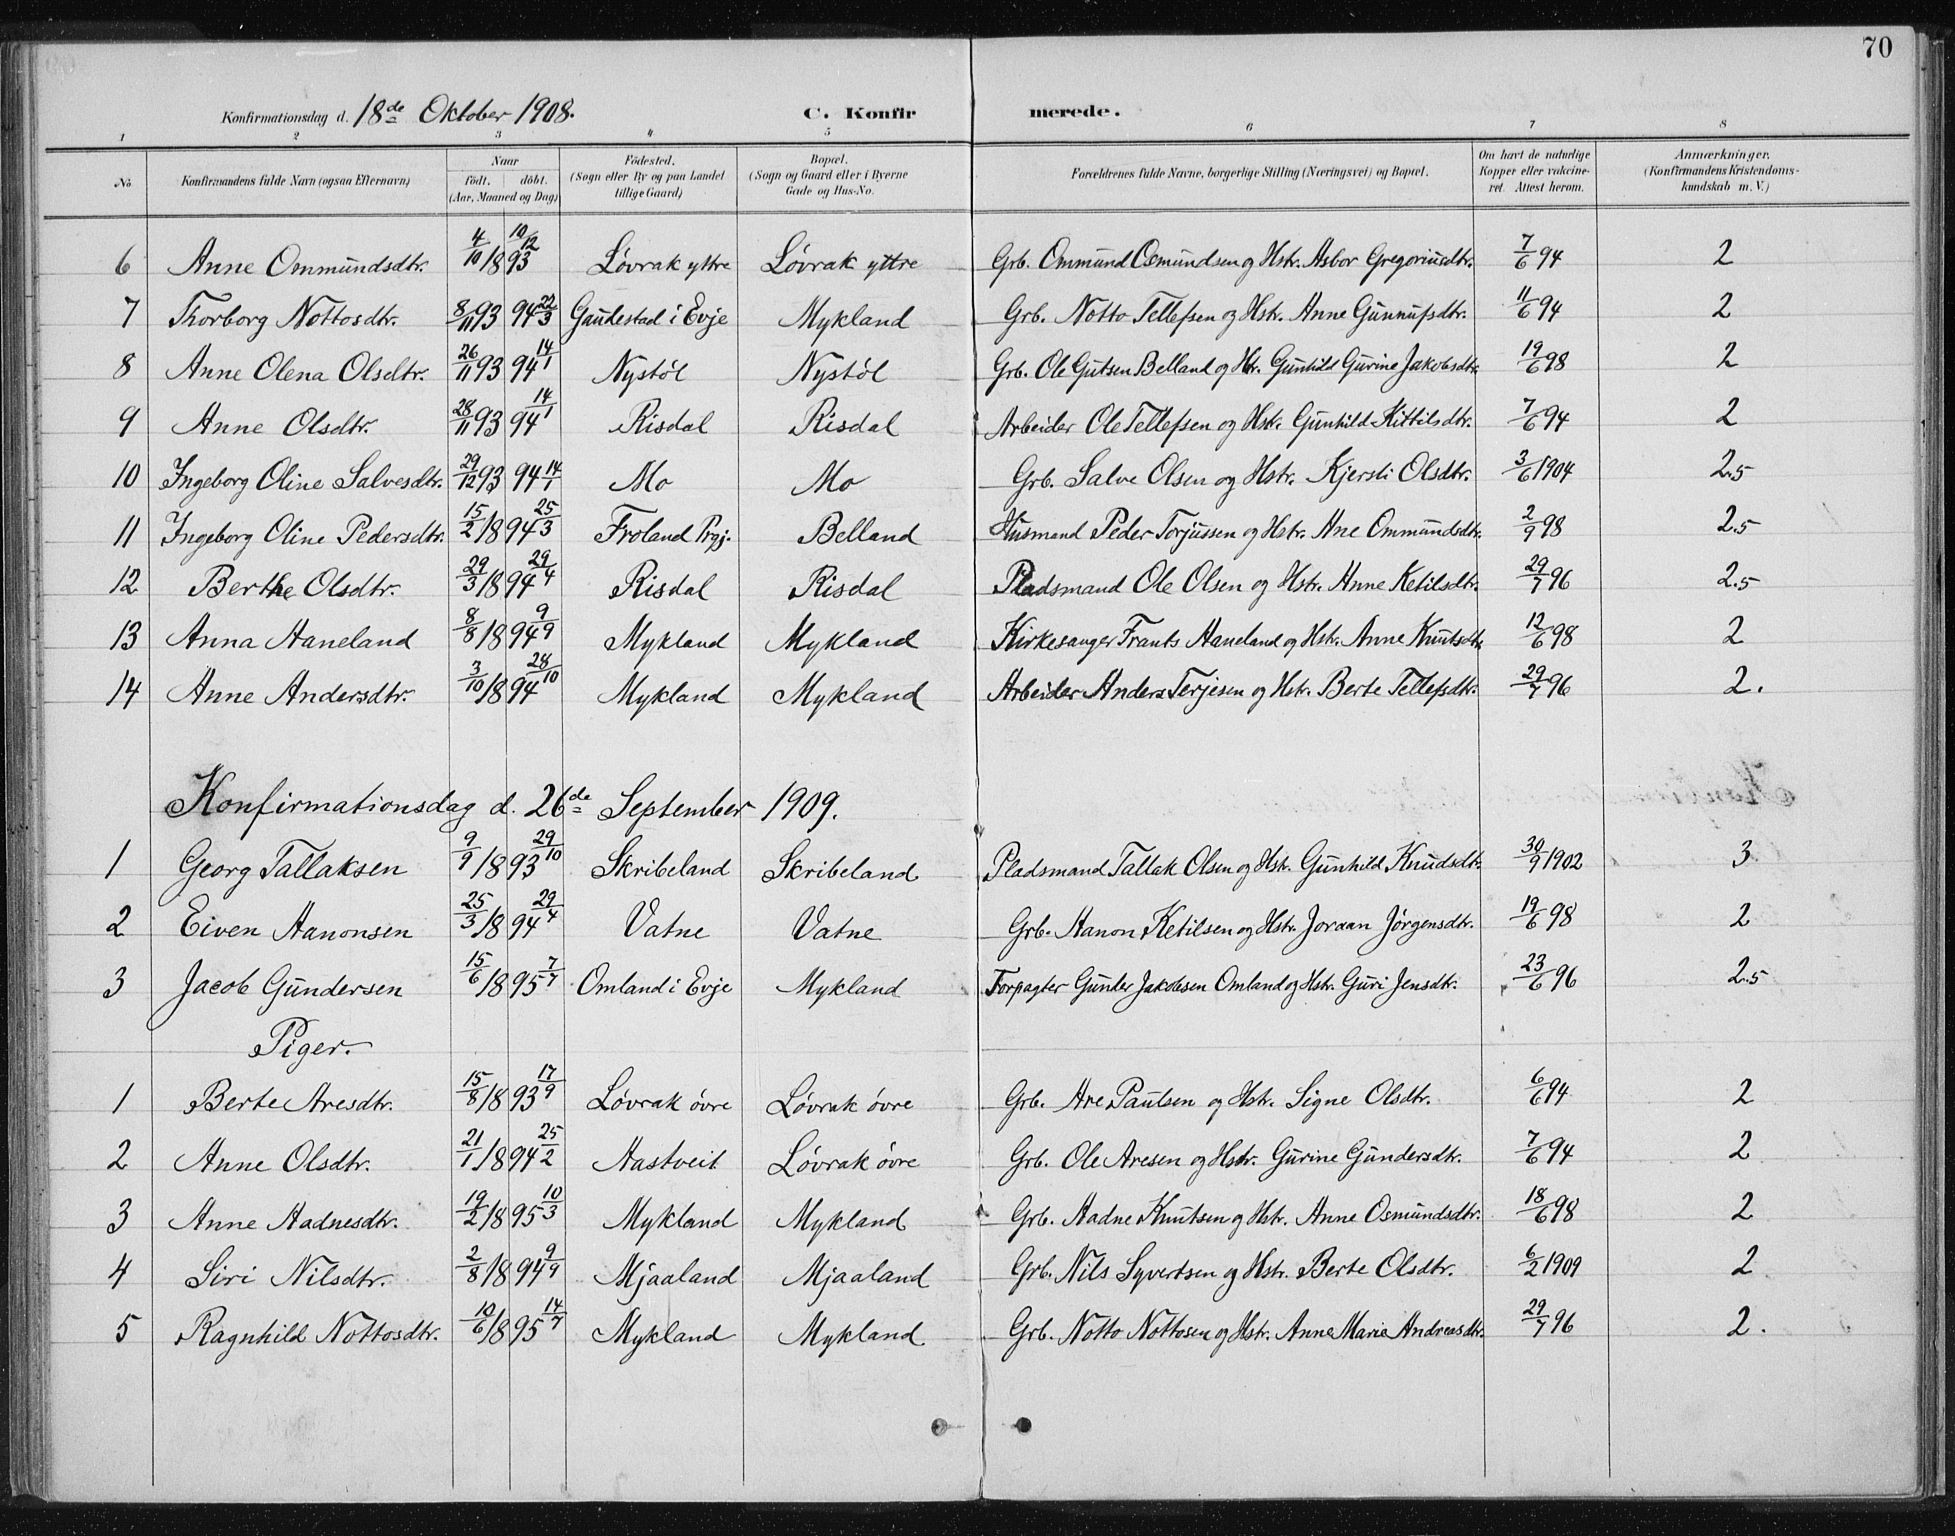 70
Konfirmationsdag d. 18de Oktober 1908. C. Konfirmerede.
1 2 3 4 5 6 7 8
No Konfirmandens fulde Navn (ogsaa Efternavn) Naar født. døbt. (Aar, Maaned og Dag) Födested. (Sogn eller By og paa Landet tillige Gaard) Bopæl. (Sogn og Gaard eller i Byerne Gade og Hus-No. Forældrenes fulde Navne, borgerlige Stilling (Næringsvei) og Bopæl. Om havt de naturlige Kopper eller vakcineret. Attest herom. Anmærkninger. (Konfirmandens Kristendomskundskab m. V.)
6 Anne Ommundsdtr. 4/10 1893 10/12 Løvrak yttre Løvrak yttre Grb. Ommund Osmundsen og Hstr. Asbor Gregoriusdtr. 7/6 94 2
7 Thorborg Nottosdtr. 8/11 93 94 22/3 Gaudestad i Evje Mykland Grb. Notto Tellefsen og Hstr. Anne Gunnufsdtr. 11/6 94 2
8 Anne Olena Olsdtr. 26/11 93 94 14/1 Nystøl Nystøl Grb. Ole Gutsen Belland og Hstr. Gunhild Gurine Jakobsdtr. 19/6 98 2
9 Anne Olsdtr. 28/11 93 94 14/1 Risdal Risdal Arbeider Ole Tellefsen og Hstr. Gunhild Kittilsdtr. 7/6 94 2
10 Ingeborg Oline Salvesdtr. 29/12 93 94 14/1 Mo Mo Grb. Salve Olsen og Hstr. Kjersti Olsdtr. 3/6 1904 2.5
11 Ingeborg Oline Pedersdtr. 15/2 1894 25/3 Froland Prgj. Belland Husmand Peder Torjussen og Hstr. Ane Ommundsdtr. 2/9 98 2.5
12 Berthe Olsdtr. 29/3 1894 29/4 Risdal Risdal Pladsmand Ole Olsen og Hstr. Anne Ketilsdtr. 29/7 96 2.5
13 Anna Haneland 8/8 1894 9/9 Mykland Mykland Kirkesanger Frants Haneland og Hstr. Anne Knutsdtr. 12/6 98 2
14 Anne Andersdtr. 3/10 1894 28/10 Mykland Mykland Arbeider Anders Terjesen og Hstr. Berte Tellefsdtr. 29/7 96 2.
Konfirmationsdag d. 26de September 1909.
1 Georg Tallaksen 9/9 1893 29/10 Skribeland Skribeland Pladsmand Tallak Olsen og Hstr. Gunhild Knudsdtr. 30/9 1902 3
2 Eiven Hanonsen 25/3 1894 29/4 Vatne Vatne Grb. Hanon Ketilsen og Hstr. Joraan Jørgensdtr. 19/6 98 2
3 Jacob Gundersen 15/6 1895 7/7 Omland i Evje Mykland Forpagter Gunder Jakobsen Omland og Hstr. Guri Jensdtr. 23/6 96 2.5
Piger.
1 Berte Aresdtr. 15/8 1893 17/9 Løvrak øvre Løvrak øvre Grb. Are Paulsen og Hstr. Signe Olsdtr. 6/6 94 2
2 Anne Olsdtr. 21/1 1894 25/2 Aastveit Løvrak øvre Grb. Ole Aresen og Hstr. Gurine Gundersdtr. 7/6 94 2
3 Anne Aadnesdtr. 19/2 1895 10/3 Mykland Mykland Grb. Aadne Knutsen og Hstr. Anne Osmundsdtr. 18/6 98 2
4 Siri Nilsdtr. 2/8 1894 9/9 Mjaaland Mjaaland Grb. Nils Syvertsen og Hstr. Berte Olsdtr. 6/2 1909 2
5 Ragnhild Nottosdtr. 10/6 1895 14/7 Mykland Mykland Grb. Notto Nottosen og Hstr. Anne Marie Andreasdtr. 29/7 96 2.